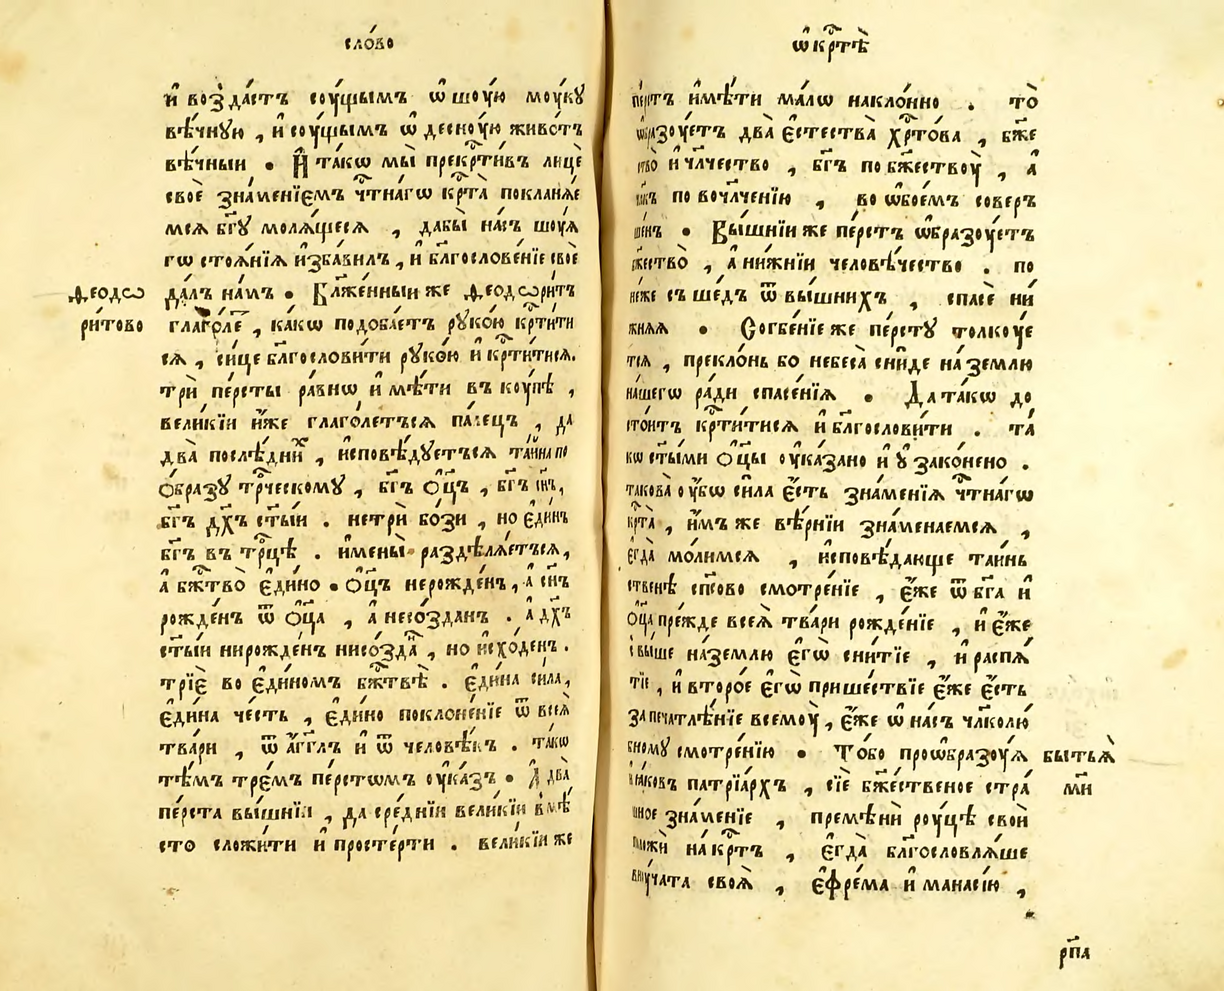 сло́во
и҆ возда́стъ соу́щымъ ѡ҆шоу́ю моу́кꙋ
вѣ́чнꙋю , и҆ соу́щымъ ѡ҆ десноу́ю живо́тъ
вѣ́чныи . И҆ та́кѡ мы̀ прекрⷭ҇ти́въ лицѐ
своѐ зна́менїемъ чⷭ҇тна́гѡ крⷭ҇та̀ покланѧ́е
мсѧ бг҃ꙋ молѧ́щесѧ , дабы̀ на́съ шоу́ѧ
гѡ стоѧ́нїѧ и҆зба́вилъ , и҆ блг҃ослове́нїе своѐ
Ѳеодѡ
да́лъ на́мъ . Бл҃же́нныи же Ѳеодѡри́тъ
ри́тово
глаго́ле , ка́кѡ подоба́етъ рꙋко́ю крⷭ҇ти́ти
сѧ , си́це блг҃ослови́ти рꙋко́ю и҆ крⷭ҇ти́тисѧ .
трѝ пе́рсты ра́внѡ и҆мѣ́ти въ коу́пѣ ,
вели́кїи и҆́же глаго́летъсѧ па́лецъ , да
два̀ послѣ́дниⷯ , и҆сповѣ́дꙋетъсѧ та́ина по
о҆́бразꙋ трⷪ҇ческомꙋ , бг҃ъ ѻ҆ц҃ъ , бг҃ъ сн҃ъ ,
бг҃ъ дх҃ъ ст҃ы́и . не трѝ бо́зи , но є҆ди́нъ
бг҃ъ въ трⷪ҇цѣ . и҆мены̀ раздѣлѧ́етъсѧ ,
а҆ бжⷭ҇тво̀ є҆ди́но . ѻ҆ц҃ъ нерожде́нъ , а҆ сн҃ъ
рожде́нъ ѿ ѻ҆ц҃а , а҆ несо́зданъ . а҆ дх҃ъ
ст҃ы́и нирожде́нъ нисо́зда , но и҆схо́денъ .
трїѐ во є҆ди́номъ бжⷭ҇твѣ̀ . є҆ди́на си́ла ,
є҆ди́на че́сть , є҆ди́но поклоне́нїе ѿ всеѧ̀
тва́ри , ѿ а҆́гг҃лъ и҆ ѿ человѣ́къ . та́кѡ
тѣ́мъ тре́мъ пе́рстѡмъ оу҆ка́зъ . А҆ два̀
пе́рста вы́шнїи , да сре́днїи вели́кїи вмѣ́
сто сложи́ти и҆ просте́рти . вели́кїи же
ѡ҆ крⷭ҇тѣ̀
пе́рстъ и҆мѣ́ти ма́лѡ накло́нно . то̀
ѡ҆бразоу́етъ два̀ є҆стества̀ хрⷭ҇то́ва , бж҃е
ство̀ и҆ чл҃чество , бг҃ъ по бж҃ествоу̀ , а҆
по вочл҃че́нїю , во ѡ҆бое́мъ соверъ
ше́нъ . Вы́шнїи же пе́рстъ ѡ҆бразоу́етъ
бж҃ество̀ , а҆ ни́жнїи человѣ́чество . по
не́же съше́дъ ѿ вы́шнихъ , спасѐ ни́
жнѧѧ . Согбе́нїе же пе́рстꙋ толкоу́е
тсѧ , прекло́нь бо небеса̀ сни́де на́ землю
на́шегѡ ра́ди спасе́нїѧ . Да та́кѡ до
сто́итъ крⷭ҇ти́тисѧ и҆ блг҃ослови́ти . та́
кѡ ст҃ы́ми ѻ҆ц҃ы оу҆ка́зано и҆ ᲂу҆зако́нено .
такова̀ оу҆́бѡ си́ла є҆́сть зна́менїѧ чⷭ҇тна́гѡ
крⷭ҇та̀ , и҆́мъ же вѣ́рнїи зна́менаемсѧ ,
є҆гда̀ мо́лимсѧ , и҆сповѣ́дающе та́инь
ственѣ сп҃со́во смотре́нїе , є҆́же ѿ бг҃а и҆
ѻ҆ц҃а пре́жде всеѧ̀ тва́ри рожде́нїе , и҆ є҆́же
свы́ше на́ землю є҆гѡ̀ сни́тїе , и҆ распѧ́
тїе , и҆ второ́е є҆гѡ̀ прише́ствїе є҆́же є҆́сть
запечатлѣ́нїе всемоу̀ , є҆́же ѡ҆ на́съ чл҃колю́
бномꙋ смотре́нїю . То́бо проѡбразоу́ѧ
бытьѧ̀
и҆а́ковъ патрїа́рхъ , сїѐ бж҃е́ственое стра́
мн
шное зна́менїе , премѣнѝ роу́цѣ своѝ
положѝ на крⷭ҇тъ , є҆гда̀ блг҃ословлѧ́ше
вноу́чата своѧ̀ , є҆фре́ма и҆ манасі́ю ,
рп҃а